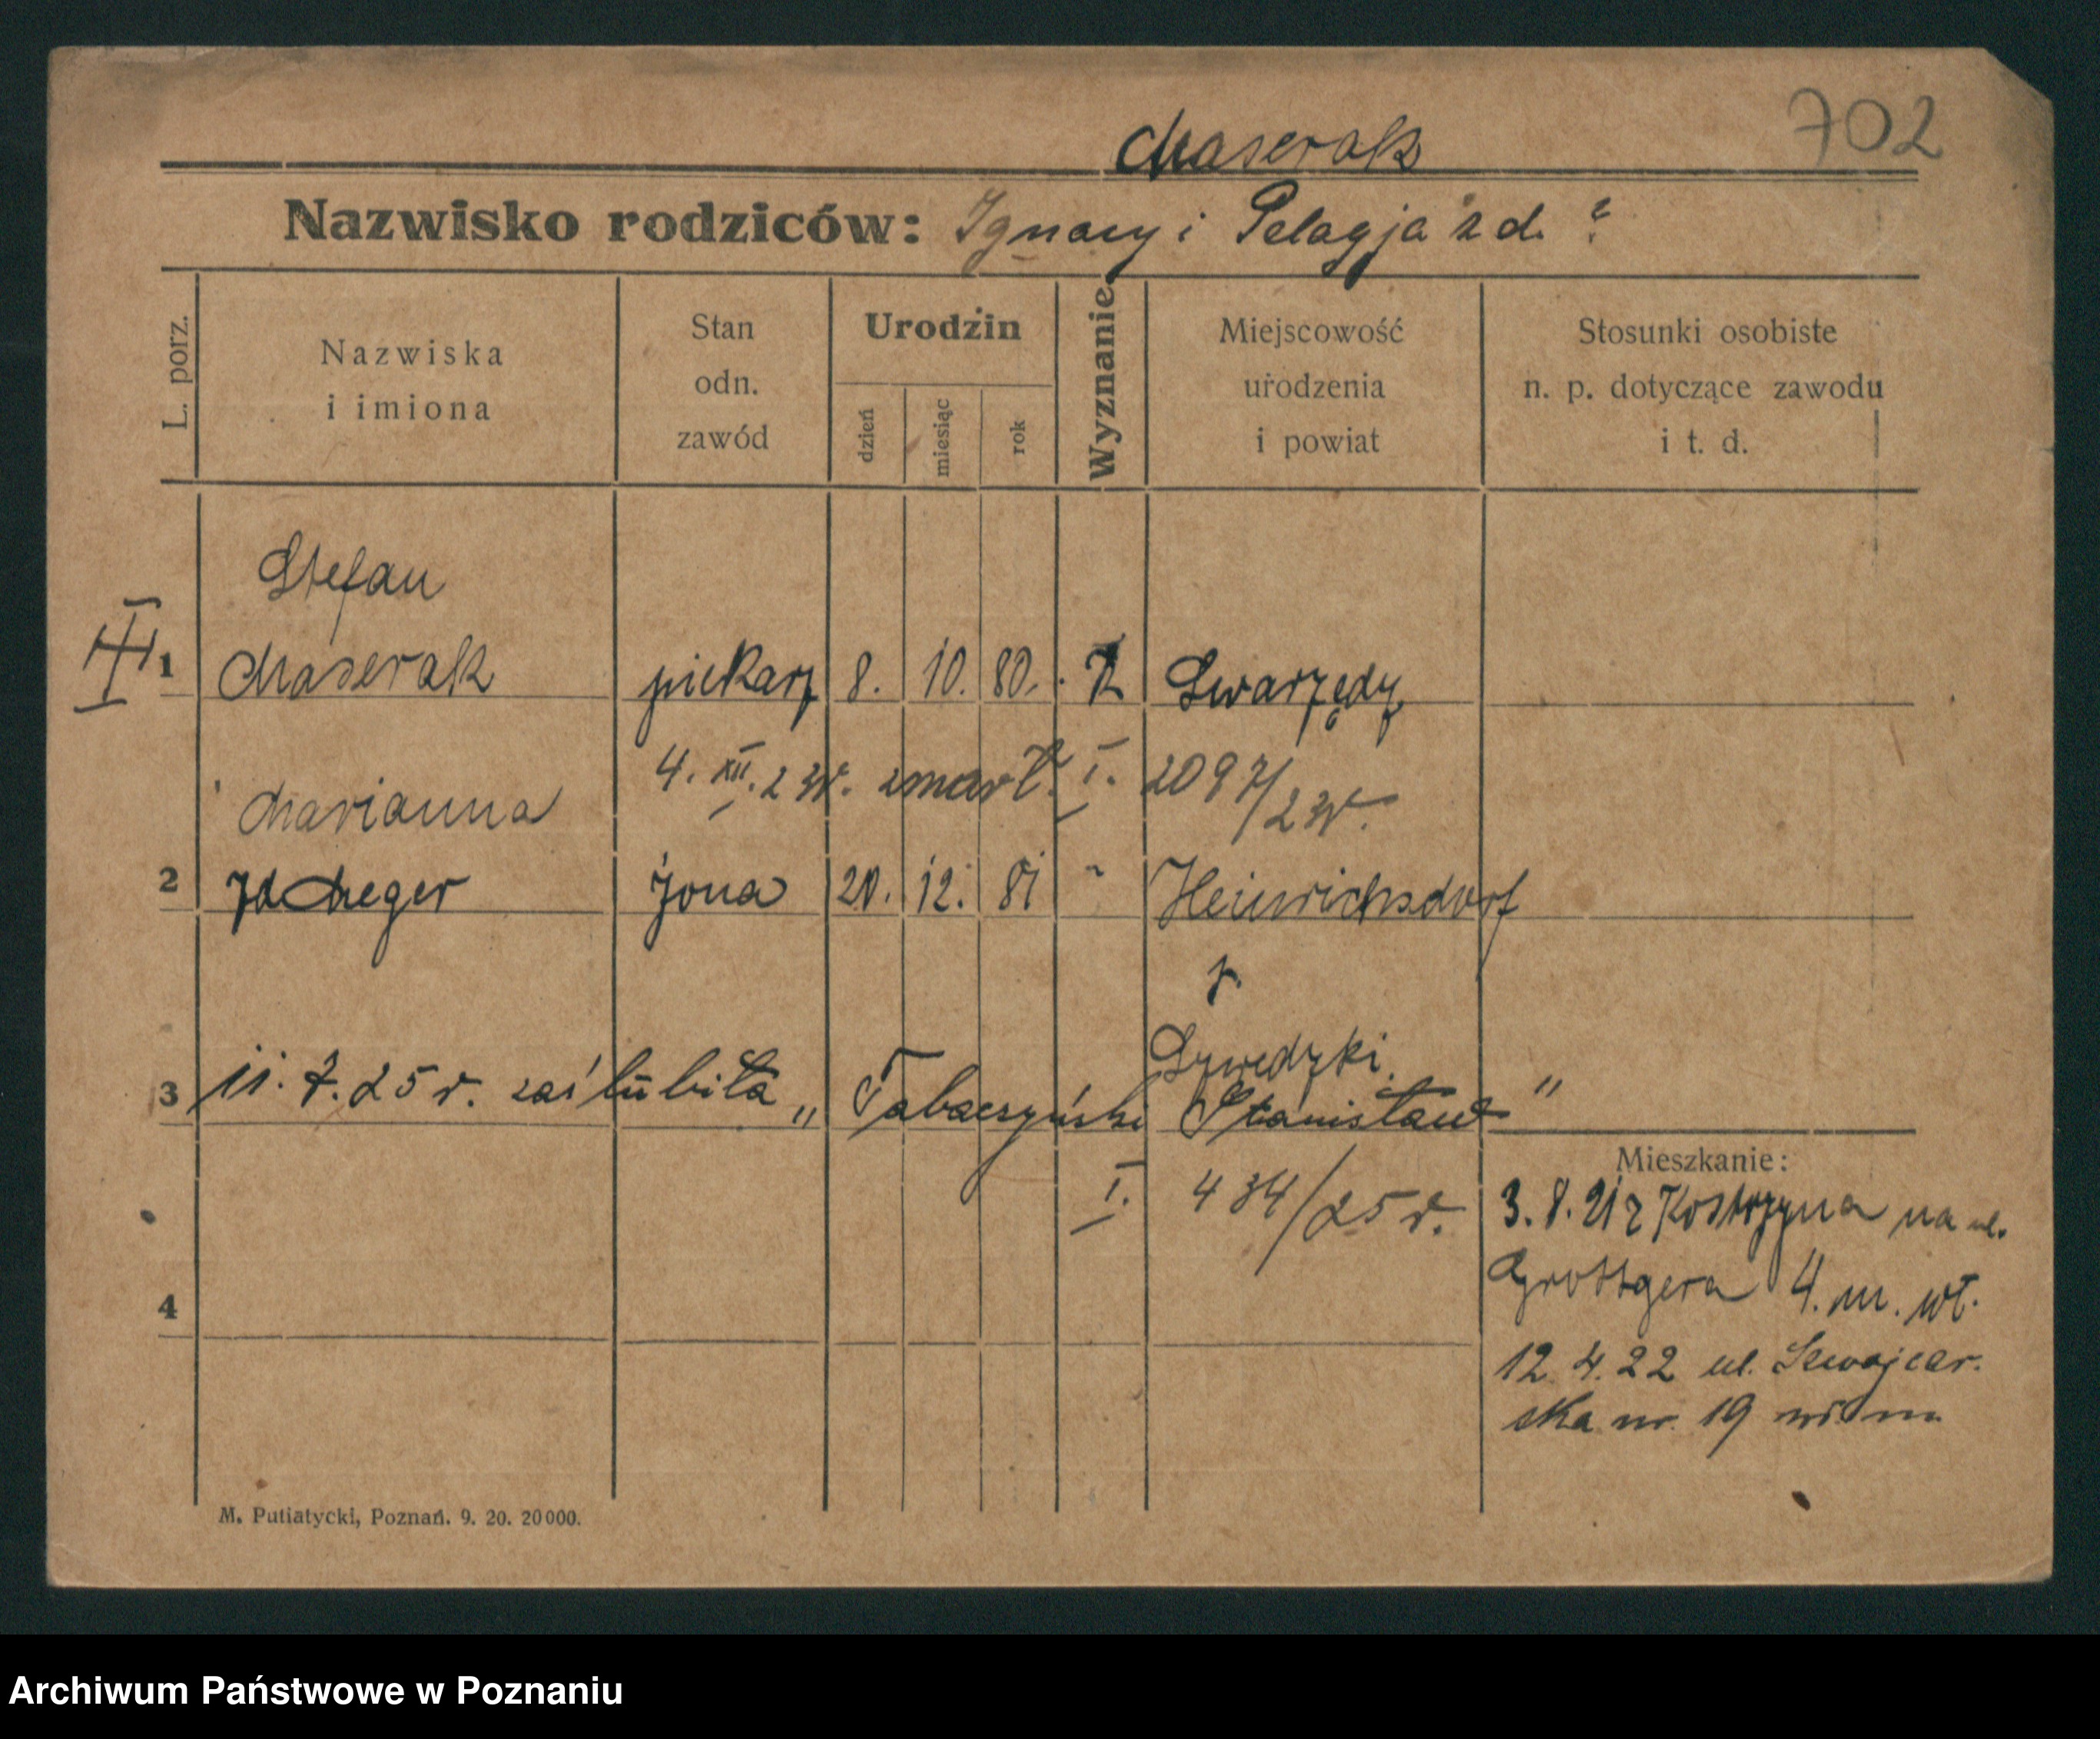 702
Maserak
Nazwisko rodziców: Ignacy i Pelagja z d. ?
L. porz.
Nazwiska
i imiona
Stan
odn.
zawód
Urodzin
dzień
miesiąc
rok
Wyznanie
Miejscowość
urodzenia
i powiat
Stosunki osobiste
n. p. dotyczące zawodu
i t. d.
Stefan
1 Maserak piekarz 8. 10. 80. Swarzędz
4. XII. 23r. zmarł. I. 2097/23r.
Marianna
2 zd Meger żona 20. 12. 81 " Heinrichsdorf
p.
Szwedzki
3 11. 7. 25 r. zaślubiła „Tabaczyński Stanisław"
I. 434/25 r.
4
Mieszkanie:
3. 8. 21 z Kostrzyna na ul.
Grottgera 4. m. wł.
12. 4. 22 ul. Szwajcar.
ska nr. 19 wł m
M. Putiatycki, Poznań. 9. 20. 20000.
Archiwum Państwowe w Poznaniu